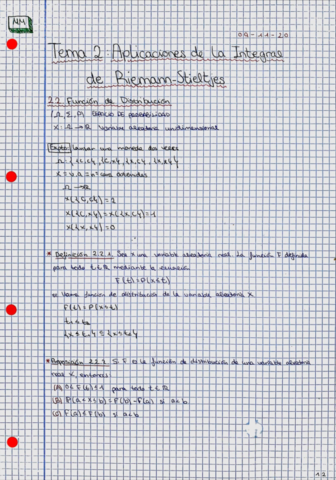 NM
09-11-20
Tema 2: Aplicaciones de la Integral
de Riemann-Stieltjes
2.2. Función de Distribución
(Ω, Σ, P) ESPACIO DE PROBABILIDAD
X: Ω → R Variable aleatoria unidimensional
Ejemplo Lanzar una moneda dos veces
Ω → R
X({C,C}) = 2
X({C,X}) = X({X,C}) = 1
X({X,X}) = 0
* Definición 2.2.1. Sea X una variable aleatoria real. La función F definida
para todo t ∈ R mediante la ecuación
F(t) = P(X≤t)
se llama función de distribución de la variable aleatoria X.
F(t) = P(X≤t)
* Proposición 2.2.2. Si F es la función de distribución de una variable aleatoria
real X, entonces
(A) 0≤F(t)≤1 para todo t ∈ R
(B) P(a<X≤b) = F(b)-F(a) si a<b
(C) F(a)≤F(b) si a<b